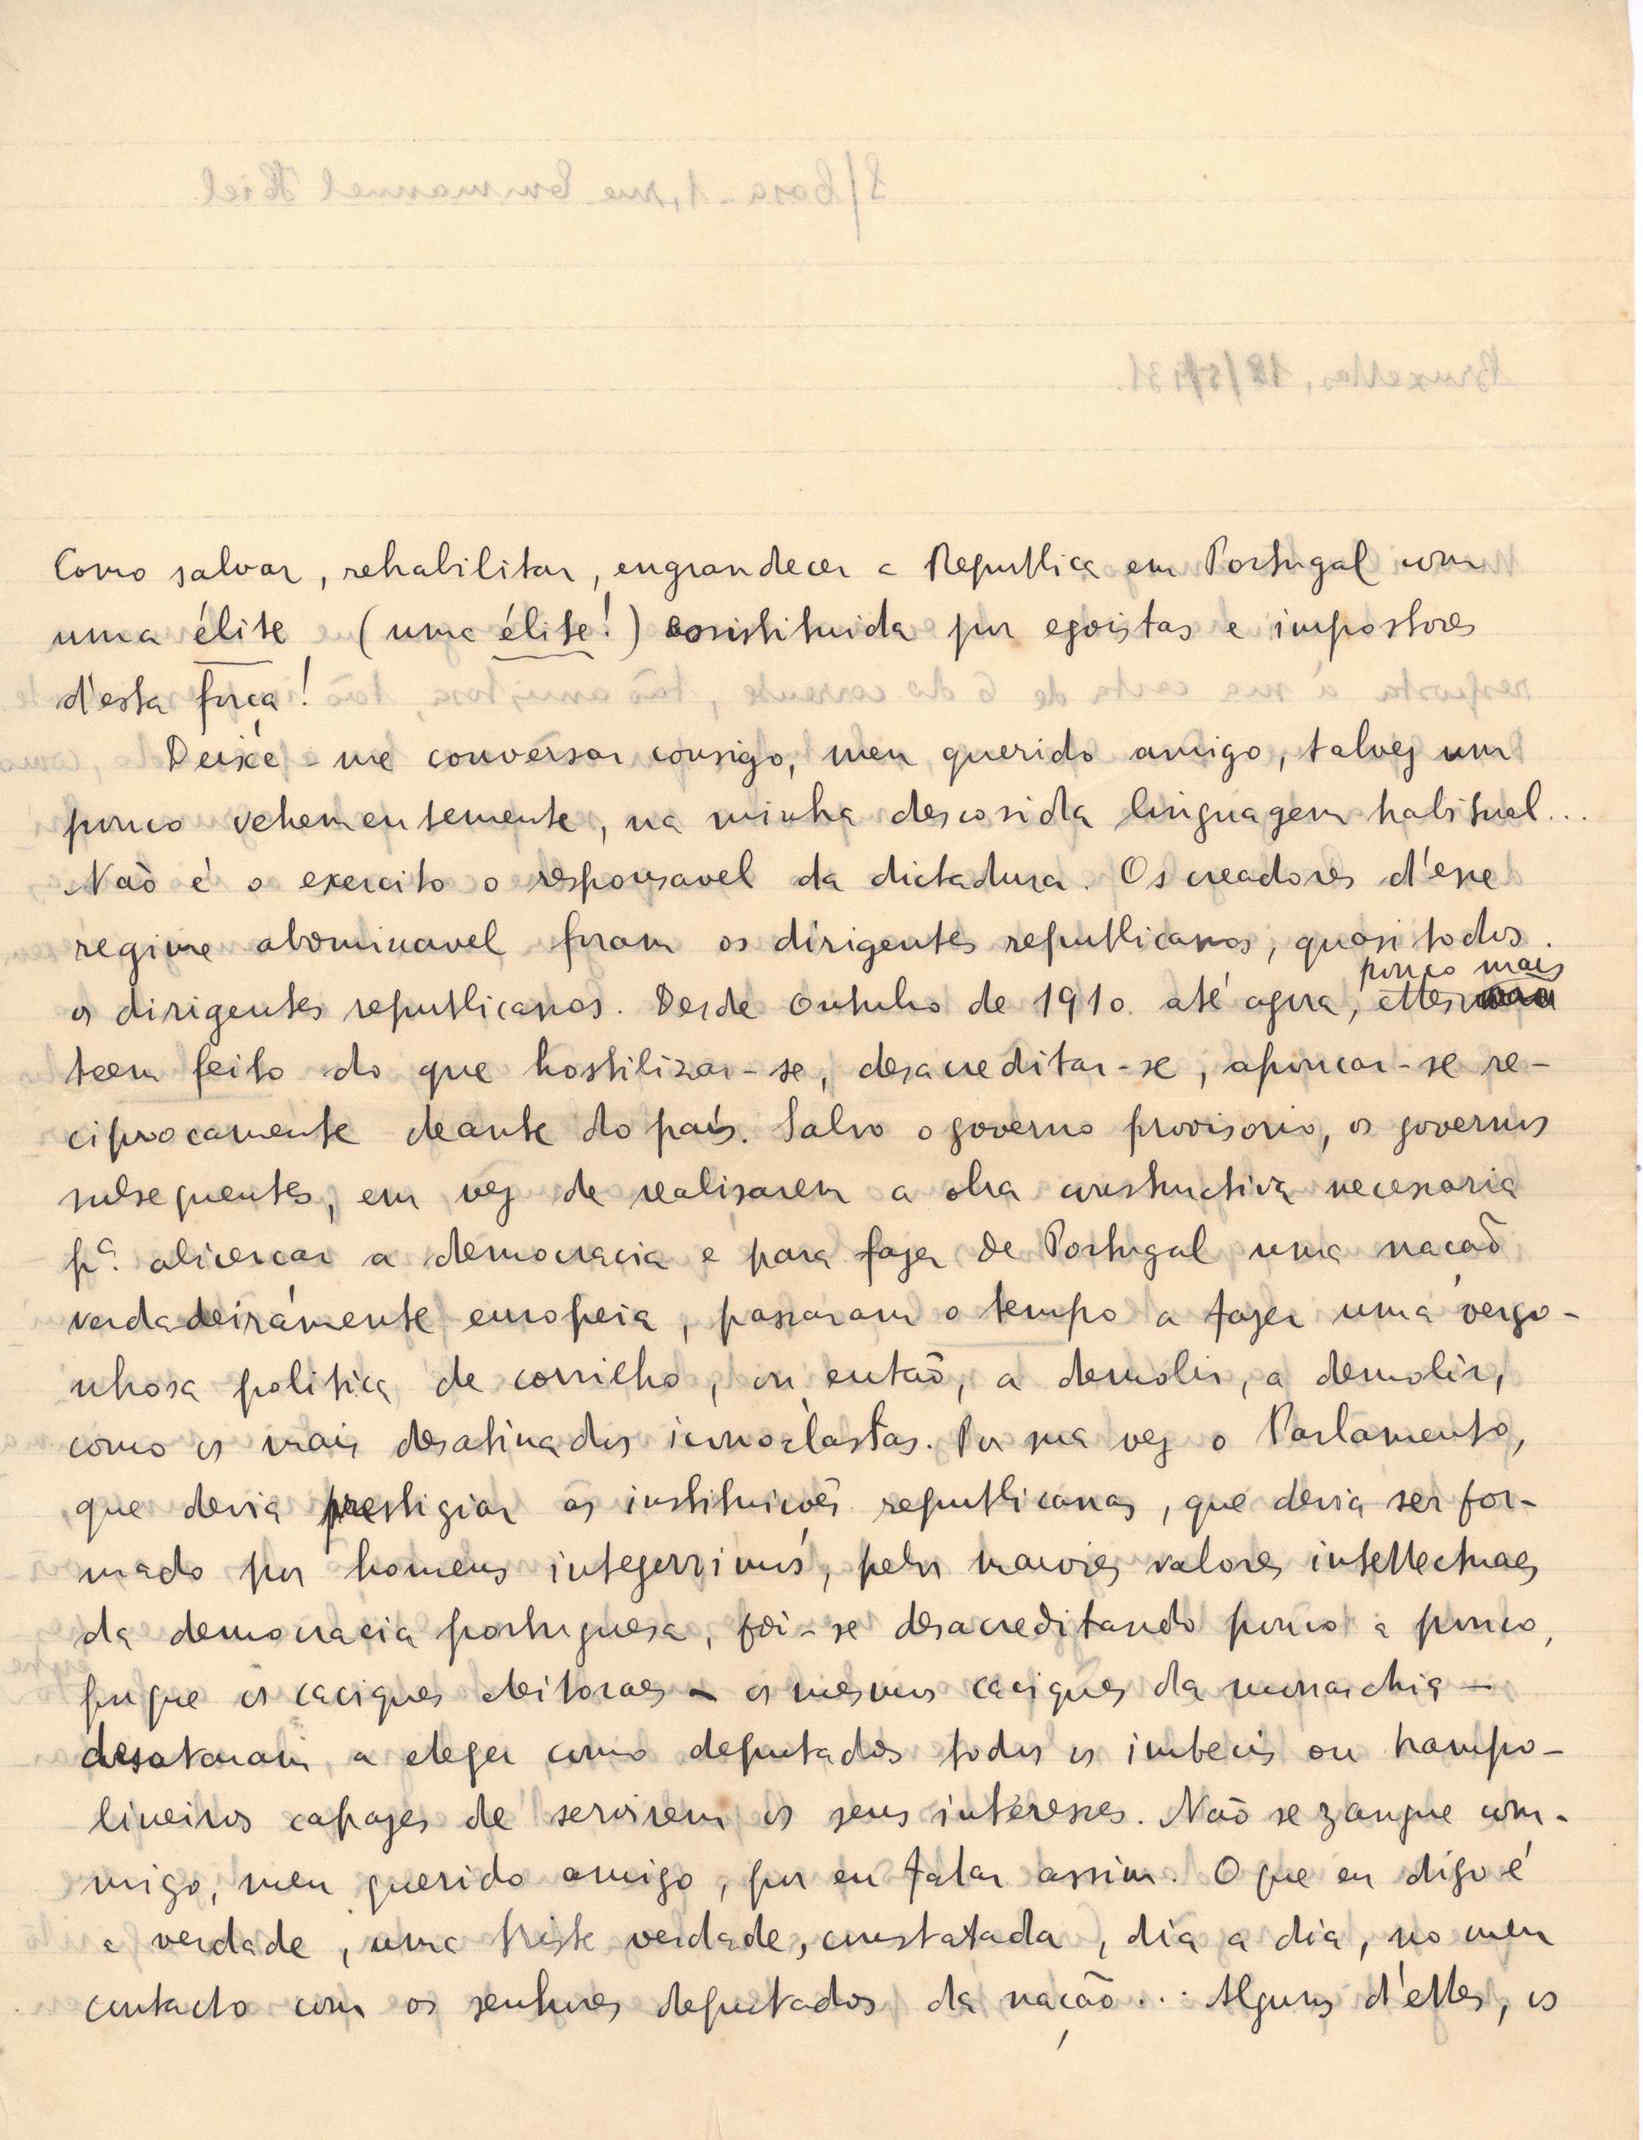 Como salvar, rehabilitar, engrandecer a Republica em Portugal com
uma élite (uma élite!) constituida por egoistas e impostores
d'esta força!
Deixe-me conversar consigo, meu querido amigo, talvez um
pouco vehementemente, na minha descosida linguagem habitual...
Não é o exercito o responsavel da dictadura. Os creadores d'esse
regime abominavel foram os dirigentes republicanos, quasi todos
os dirigentes republicanos. Desde outubro de 1910 até agora, elles pouco mais
teem feito do que hostilizar-se, desacreditar-se, apoucar-se re-
ciprocamente deante do país. Salvo o governo provisorio, os governos
subsequentes, em vez de realisarem a obra constructiva necessaria
pª. alicerçar a democracia e para fazer de Portugal uma nação
verdadeiramente europeia, passaram o tempo a fazer uma vergo-
nhosa politica de corrilho, ou então, a demolir, a demolir,
como os mais desatinados iconoclastas. Por sua vez o Parlamento,
que devia prestigiar as instituições republicanas, que devia ser for-
mado por homens integerrimos, pelos maiores valores intellectuaes
da democracia portuguesa, foi-se desacreditando pouco a pouco,
porque os caciques eleitoraes - os mesmos caciques da monarchia -
desataram a eleger como deputados todos os imbecis ou trampo-
lineiros capazes de servirem os seus interesses. Não se zangue com-
migo, meu querido amigo, por eu falar assim. O que eu digo é
a verdade, uma triste verdade, constatada, dia a dia, no meu
contacto com os senhores deputados da nação... Alguns d'elles, os